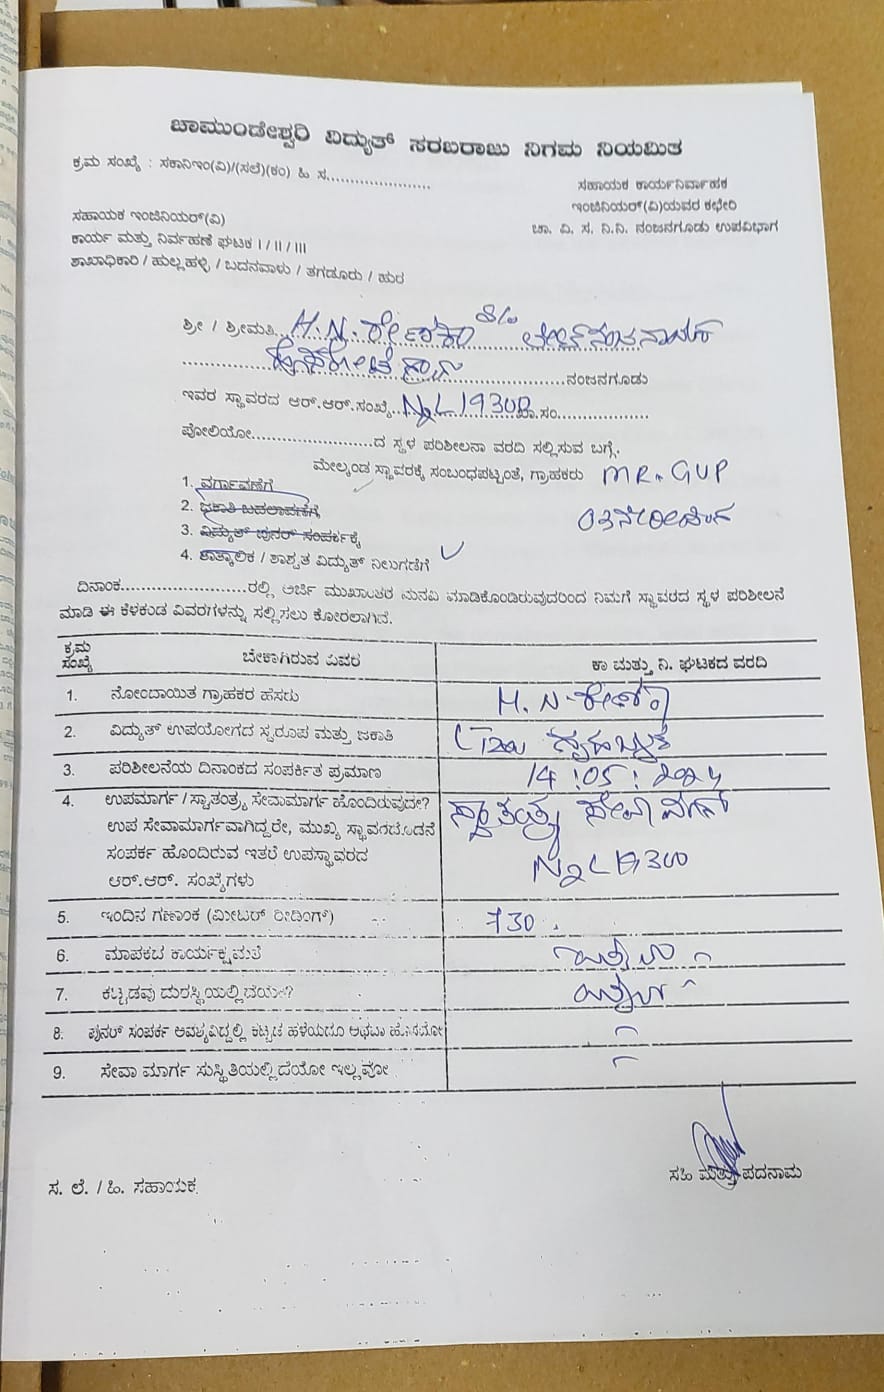 ಚಾಮುಂಡೇಶ್ವರಿ ವಿದ್ಯುತ್ ಸರಬರಾಜು ನಿಗಮ ನಿಯಮಿತ
ಕ್ರಮ ಸಂಖ್ಯೆ : ಸಕಾನಿಇಂ(ವಿ)/(ಸಲೆ)(ಕಂ) ಹಿ ಸ.....................
ಸಹಾಯಕ ಕಾರ್ಯನಿರ್ವಾಹಕ
ಇಂಜಿನಿಯರ್(ವಿ)ಯವರ ಕಛೇರಿ
ಚಾ. ವಿ. ಸ. ನಿ.ನಿ. ನಂಜನಗೂಡು ಉಪವಿಭಾಗ
ಸಹಾಯಕ ಇಂಜಿನಿಯರ್(ವಿ)
ಕಾರ್ಯ ಮತ್ತು ನಿರ್ವಹಣೆ ಘಟಕ I / II / III
ಶಾಖಾಧಿಕಾರಿ / ಹುಲ್ಲಹಳ್ಳಿ / ಬದನವಾಳು / ತಗಡೂರು / ಹುರ
ಶ್ರೀ / ಶ್ರೀಮತಿ... H.N. S/o
ನಂಜನಗೂಡು
ಇವರ ಸ್ಥಾವರದ ಆರ್.ಆರ್.ಸಂಖ್ಯೆ.. N2L19300 ಖಾ.ಸಂ..................
ಪೋಲಿಯೋ......................ದ ಸ್ಥಳ ಪರಿಶೀಲನಾ ವರದಿ ಸಲ್ಲಿಸುವ ಬಗ್ಗೆ.
ಮೇಲ್ಕಂಡ ಸ್ಥಾವರಕ್ಕೆ ಸಂಬಂಧಪಟ್ಟಂತೆ, ಗ್ರಾಹಕರು MR. GVP
1. ವರ್ಗಾವಣೆಗೆ
2. ಜಕಾತಿ ಬದಲಾವಣೆಗೆ
3. ವಿದ್ಯುತ್ ಪುನರ್ ಸಂಪರ್ಕಕ್ಕೆ
4. ತಾತ್ಕಾಲಿಕ / ಶಾಶ್ವತ ವಿದ್ಯುತ್ ನಿಲುಗಡೆಗೆ ✓
ದಿನಾಂಕ.......................ರಲ್ಲಿ ಅರ್ಜಿ ಮುಖಾಂತರ ಮನವಿ ಮಾಡಿಕೊಂಡಿರುವುದರಿಂದ ನಿಮಗೆ ಸ್ಥಾವರದ ಸ್ಥಳ ಪರಿಶೀಲನೆ
ಮಾಡಿ ಈ ಕೆಳಕಂಡ ವಿವರಗಳನ್ನು ಸಲ್ಲಿಸಲು ಕೋರಲಾಗಿದೆ.
ಕ್ರಮ ಸಂಖ್ಯೆ ಬೇಕಾಗಿರುವ ವಿವರ ಕಾ ಮತ್ತು ನಿ. ಘಟಕದ ವರದಿ
1. ನೋಂದಾಯಿತ ಗ್ರಾಹಕರ ಹೆಸರು H. N.
2. ವಿದ್ಯುತ್ ಉಪಯೋಗದ ಸ್ವರೂಪ ಮತ್ತು ಜಕಾತಿ
3. ಪರಿಶೀಲನೆಯ ದಿನಾಂಕದ ಸಂಪರ್ಕಿತ ಪ್ರಮಾಣ 14:05:2024
4. ಉಪಮಾರ್ಗ / ಸ್ವಾತಂತ್ರ್ಯ ಸೇವಾಮಾರ್ಗ ಹೊಂದಿರುವುದೇ?
ಉಪ ಸೇವಾಮಾರ್ಗವಾಗಿದ್ದರೇ, ಮುಖ್ಯ ಸ್ಥಾವರದೊಡನೆ
ಸಂಪರ್ಕ ಹೊಂದಿರುವ ಇತರೆ ಉಪಸ್ಥಾವರದ
ಆರ್.ಆರ್. ಸಂಖ್ಯೆಗಳು
ಸ್ವಾತಂತ್ರ್ಯ ಸೇವಾ
N2L19300
5. ಇಂದಿನ ಗಣಾಂಕ (ಮೀಟರ್ ರೀಡಿಂಗ್) 730
6. ಮಾಪಕದ ಕಾರ್ಯಕ್ಷಮತೆ
7. ಕಟ್ಟಡವು ದುರಸ್ಥಿಯಲ್ಲಿದೆಯೇ?
8. ಪುನರ್ ಸಂಪರ್ಕ ಅವಶ್ಯವಿದ್ದಲ್ಲಿ ಕಟ್ಟಡ ಹಳೆಯದೂ ಅಥವಾ ಹೊಸದೋ
9. ಸೇವಾ ಮಾರ್ಗ ಸುಸ್ಥಿತಿಯಲ್ಲಿದೆಯೋ ಇಲ್ಲವೋ
ಸ. ಲೆ. / ಹಿ. ಸಹಾಯಕ
ಸಹಿ ಮತ್ತು ಪದನಾಮ